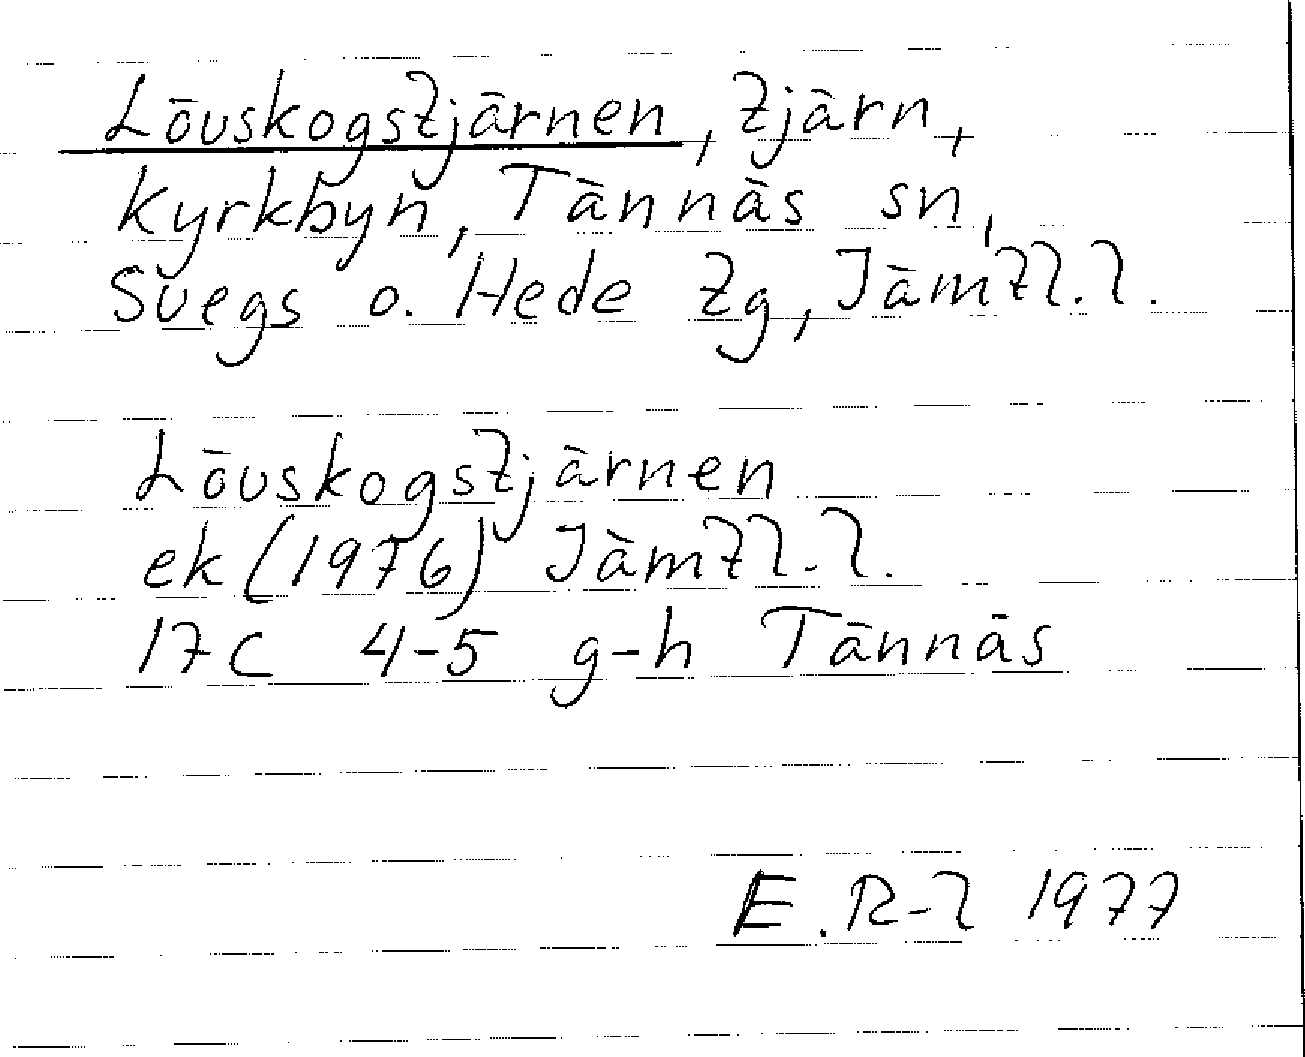 Lövskogstjärnen, tjärn,
Kyrkbyn, Tännäs sn,
Svegs o. Hede tg, Jämtl. l.
Lövskogstjärnen
ek (1976) Jämtl. l.
17C 4-5 g-h Tännäs
E. R-l 1977